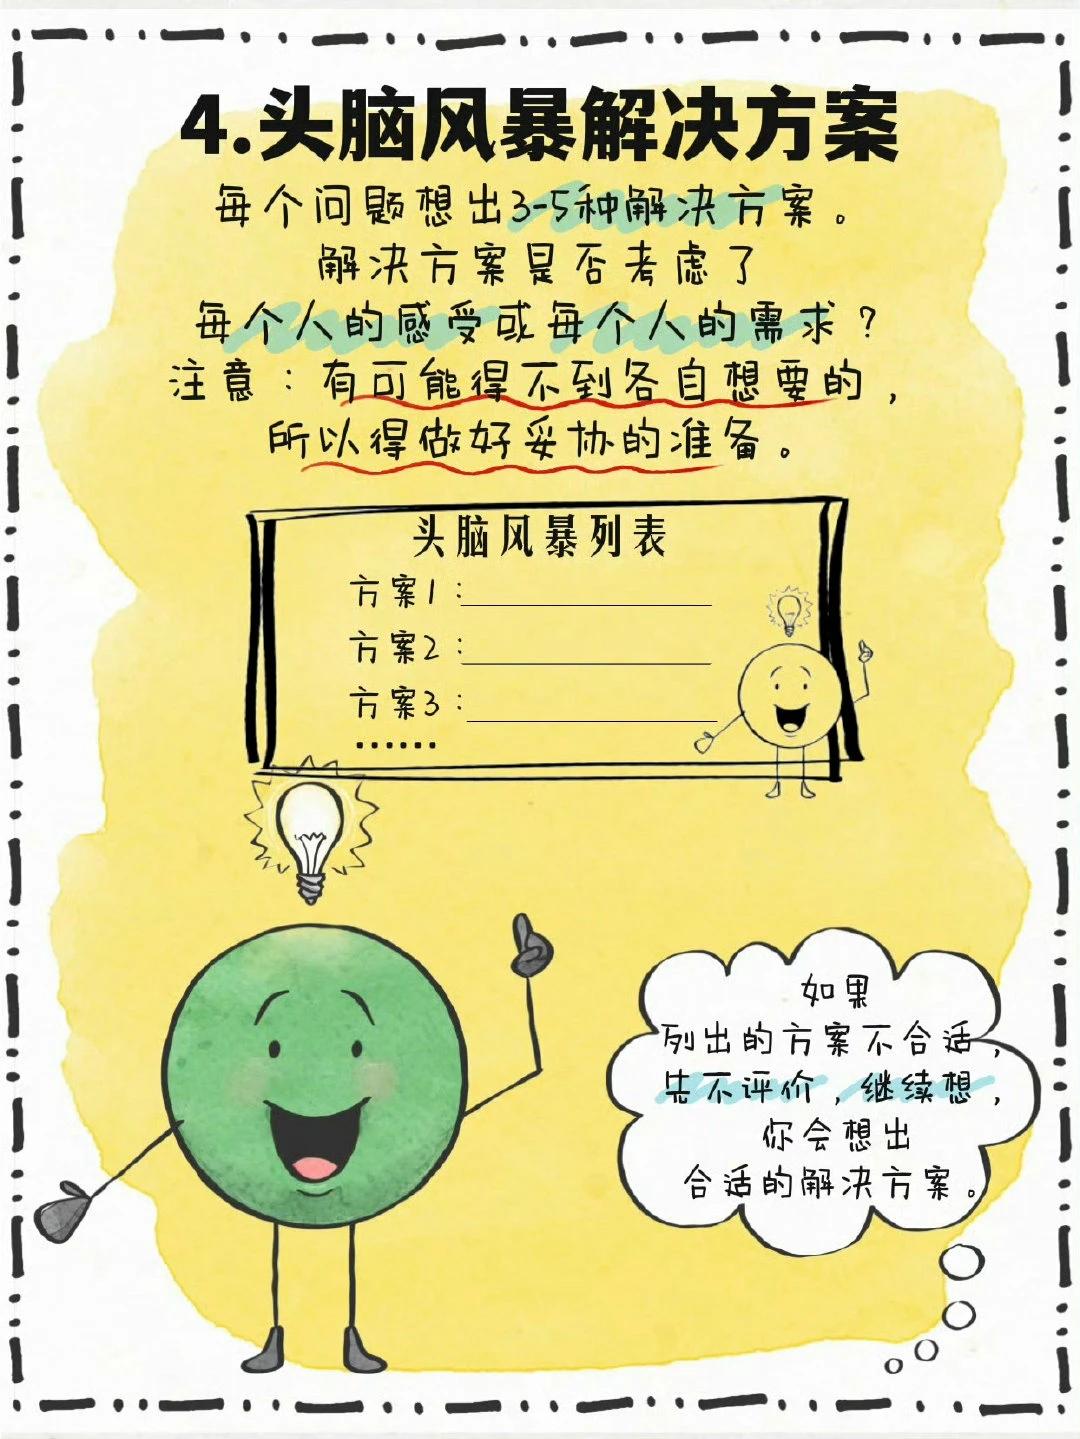 4.头脑风暴解决方案
每个问题想出3-5种解决方案。
解决方案是否考虑了
每个人的感受或每个人的需求？
注意：有可能得不到各自想要的，
所以得做好妥协的准备。
头脑风暴列表
方案1：
方案2：
方案3：
······
如果
列出的方案不合适，
先不评价，继续想，
你会想出
合适的解决方案。